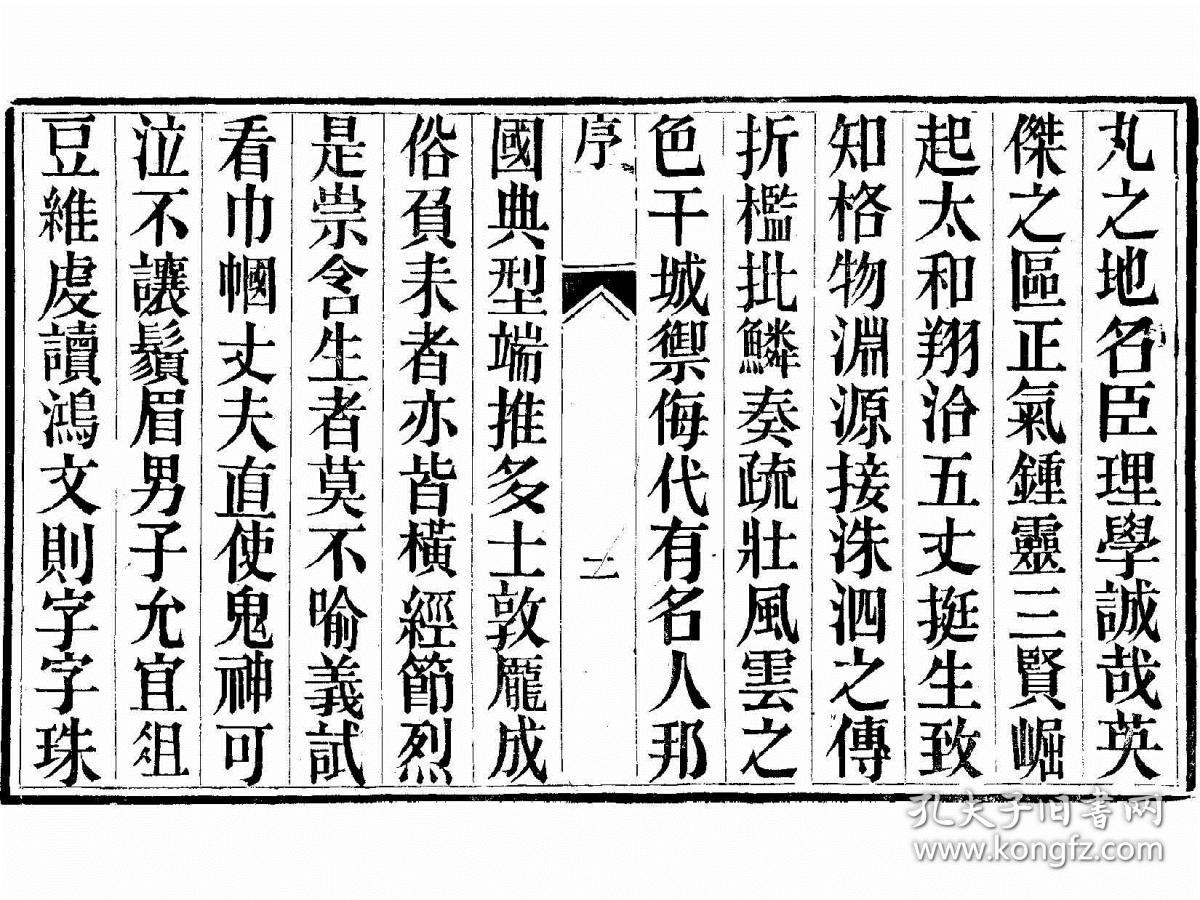 丸之地名臣理學誠哉英
傑之區正氣鍾靈三賢崛
起太和翔洽五丈挺生致
知格物淵源接洙泗之傳
折檻批鱗奏疏壯風雲之
色干城禦侮代有名人邦
序
二
國典型端推多士敦龐成
俗負耒者亦皆橫經節烈
是崇含生者莫不喻義試
看巾幗丈夫直使鬼神可
泣不讓鬚眉男子允宜俎
豆維虔讀鴻文則字字珠
孔夫子旧书网
www.kongfz.com